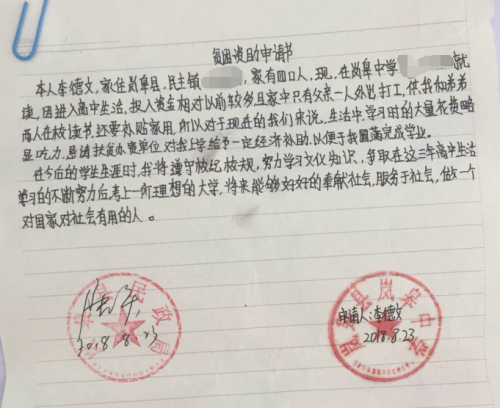 贫困资助申请书
本人李德文,家住岚皋县,民主镇 家有四口人,现,在岚皋中学 就
读,因进入高中生活,投入资金相对以前较多且家中只有父亲一人外出打工,供我和弟弟
两人在校读书,还要补贴家用,所以对于现在的我们来说,生活中,学习时的大量花费略
显吃力,恳请扶贫办贵单位对我上学给予一定经济补助,以便于我圆满完成学业。
在今后的学生生涯时,我将遵守校纪校规,努力学习文化知识,争取在这三年高中生活
学习的不断努力后,考上一所理想的大学,将来能够好好的奉献社会,服务于社会,做一个
对国家对社会有用的人。
2018.8.23
民政局
申请人:李德文
2018.8.23
县岚皋中学